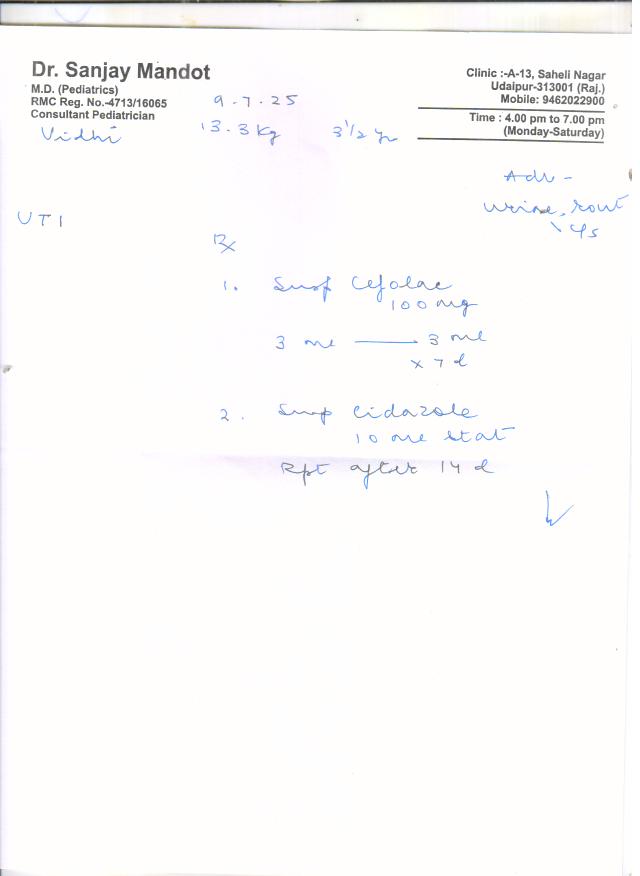 Dr. Sanjay Mandot
M.D. (Pediatrics)
RMC Reg. No.-4713/16065
Consultant Pediatrician
Clinic :-A-13, Saheli Nagar
Udaipur-313001 (Raj.)
Mobile: 9462022900
Time : 4.00 pm to 7.00 pm
(Monday-Saturday)
9.7.25
Vidhi 13.3 kg 3 1/2 yr
Adv -
Urine, rout
c/s
UTI
Rx
1. Susp Cefolac
100 mg
3 ml —— 3 ml
x 7 d
2. Susp Cidazole
10 ml stat
Rpt after 14 d